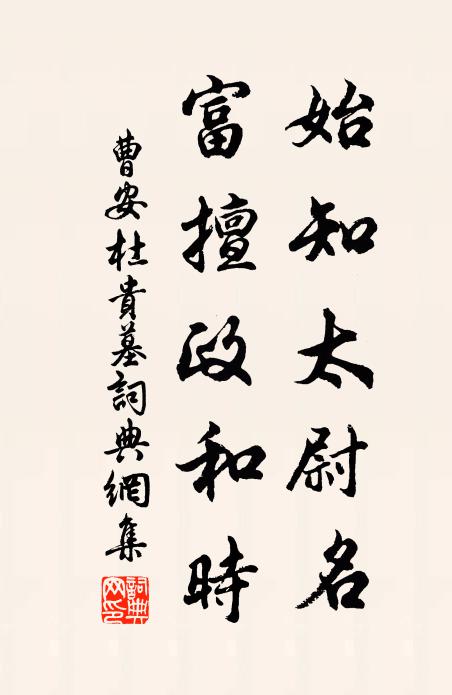 始知太尉名
富擅政和時
曹安杜貴墓詞典網集
詞典
網印